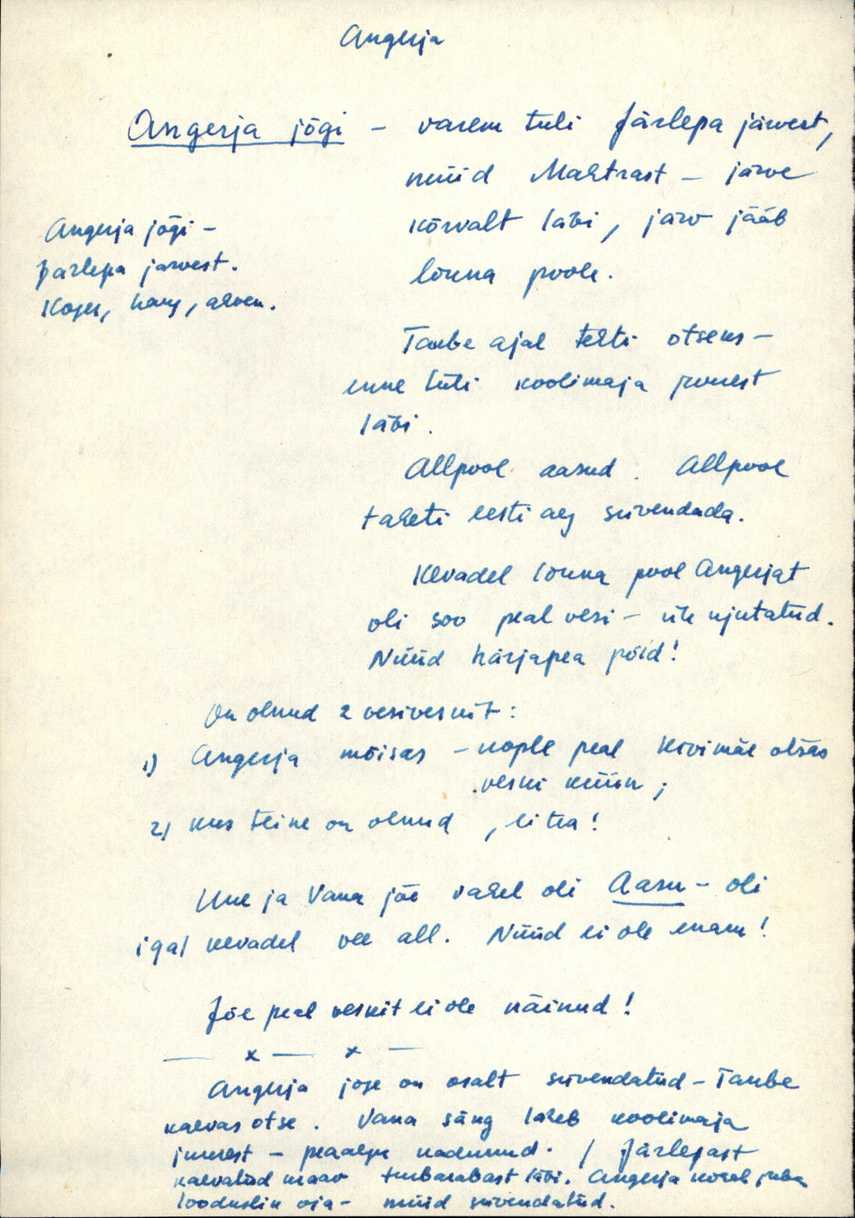 Angerja
Angerja jõgi – varem tuli Järlepa järvest,
nüüd Mahtrast – järve
kõrvalt läbi, järv jääb
lõuna poole.
Angerja jõgi –
Järlepa järvest.
Taube ajal tehti otseks –
enne tuli koolimaja juurest
läbi.
Allpool aasud. Allpool
taheti eesti aeg süvendada.
Kevadel lõuna pool Angerjat
oli soo peal vesi – üle ujutatud.
Nüüd härjapea põld!
On olnud 2 vesiveskit:
1) Angerja mõisas – kople peal Kivimäe otsas
veski küün;
2) kus teine on olnud, ei tea!
Uue ja Vana jõe vahel oli Aasu – oli
igal kevadel vee all. Nüüd ei ole enam!
Jõe peal veskit ei ole näinud!
— x — x —
Angerja jõge on osalt süvendatud – Taube
kaevas otse. Vana säng läheb koolimaja
juurest – peaaegu kadunud. / Järlepast
kaevatud kraav turbarabast läbi. Angerja kohal juba
looduslik oja – nüüd süvendatud.